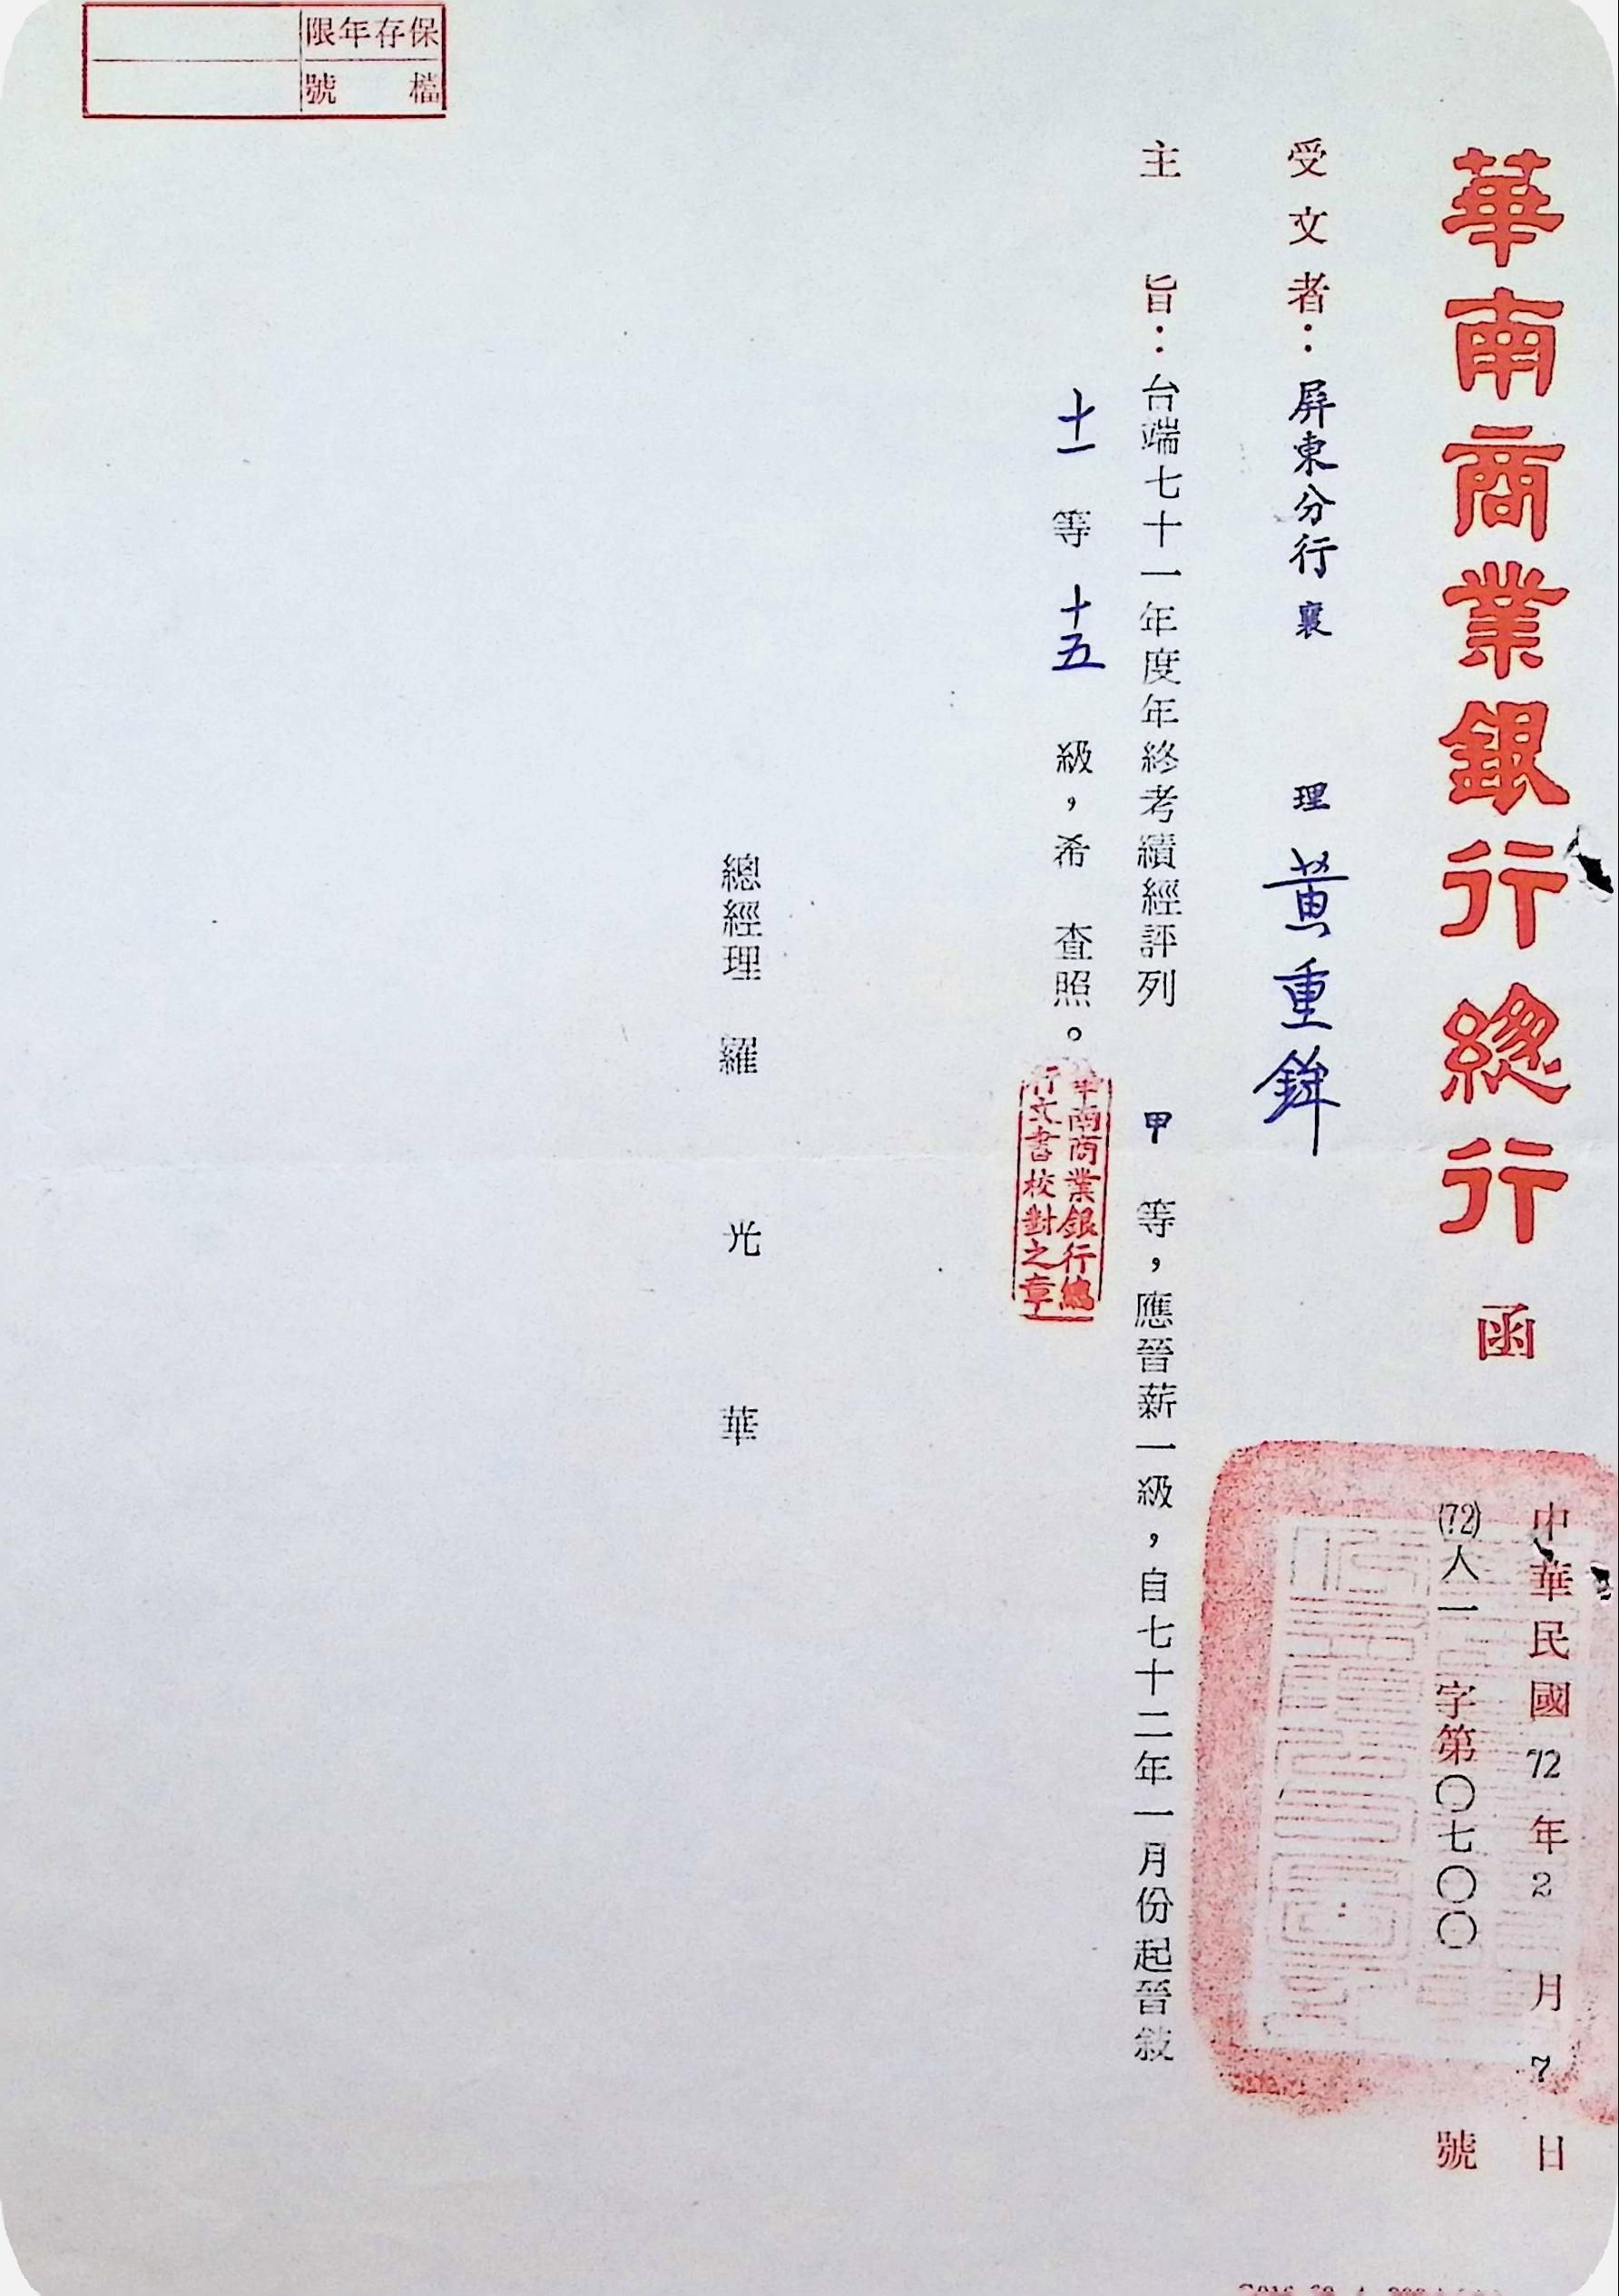 華南商業銀行總行 函
中華民國72年2月7日
(72)人一字第〇七〇〇號
受文者：屏東分行襄理黃重鉾
主旨：台端七十一年度年終考績經評列 甲 等，應晉薪一級，自七十二年一月份起晉敍
十一 等 十五 級，希 查照。
華南商業銀行總
行文書校對之章
總經理 羅光華
保存年限
檔號